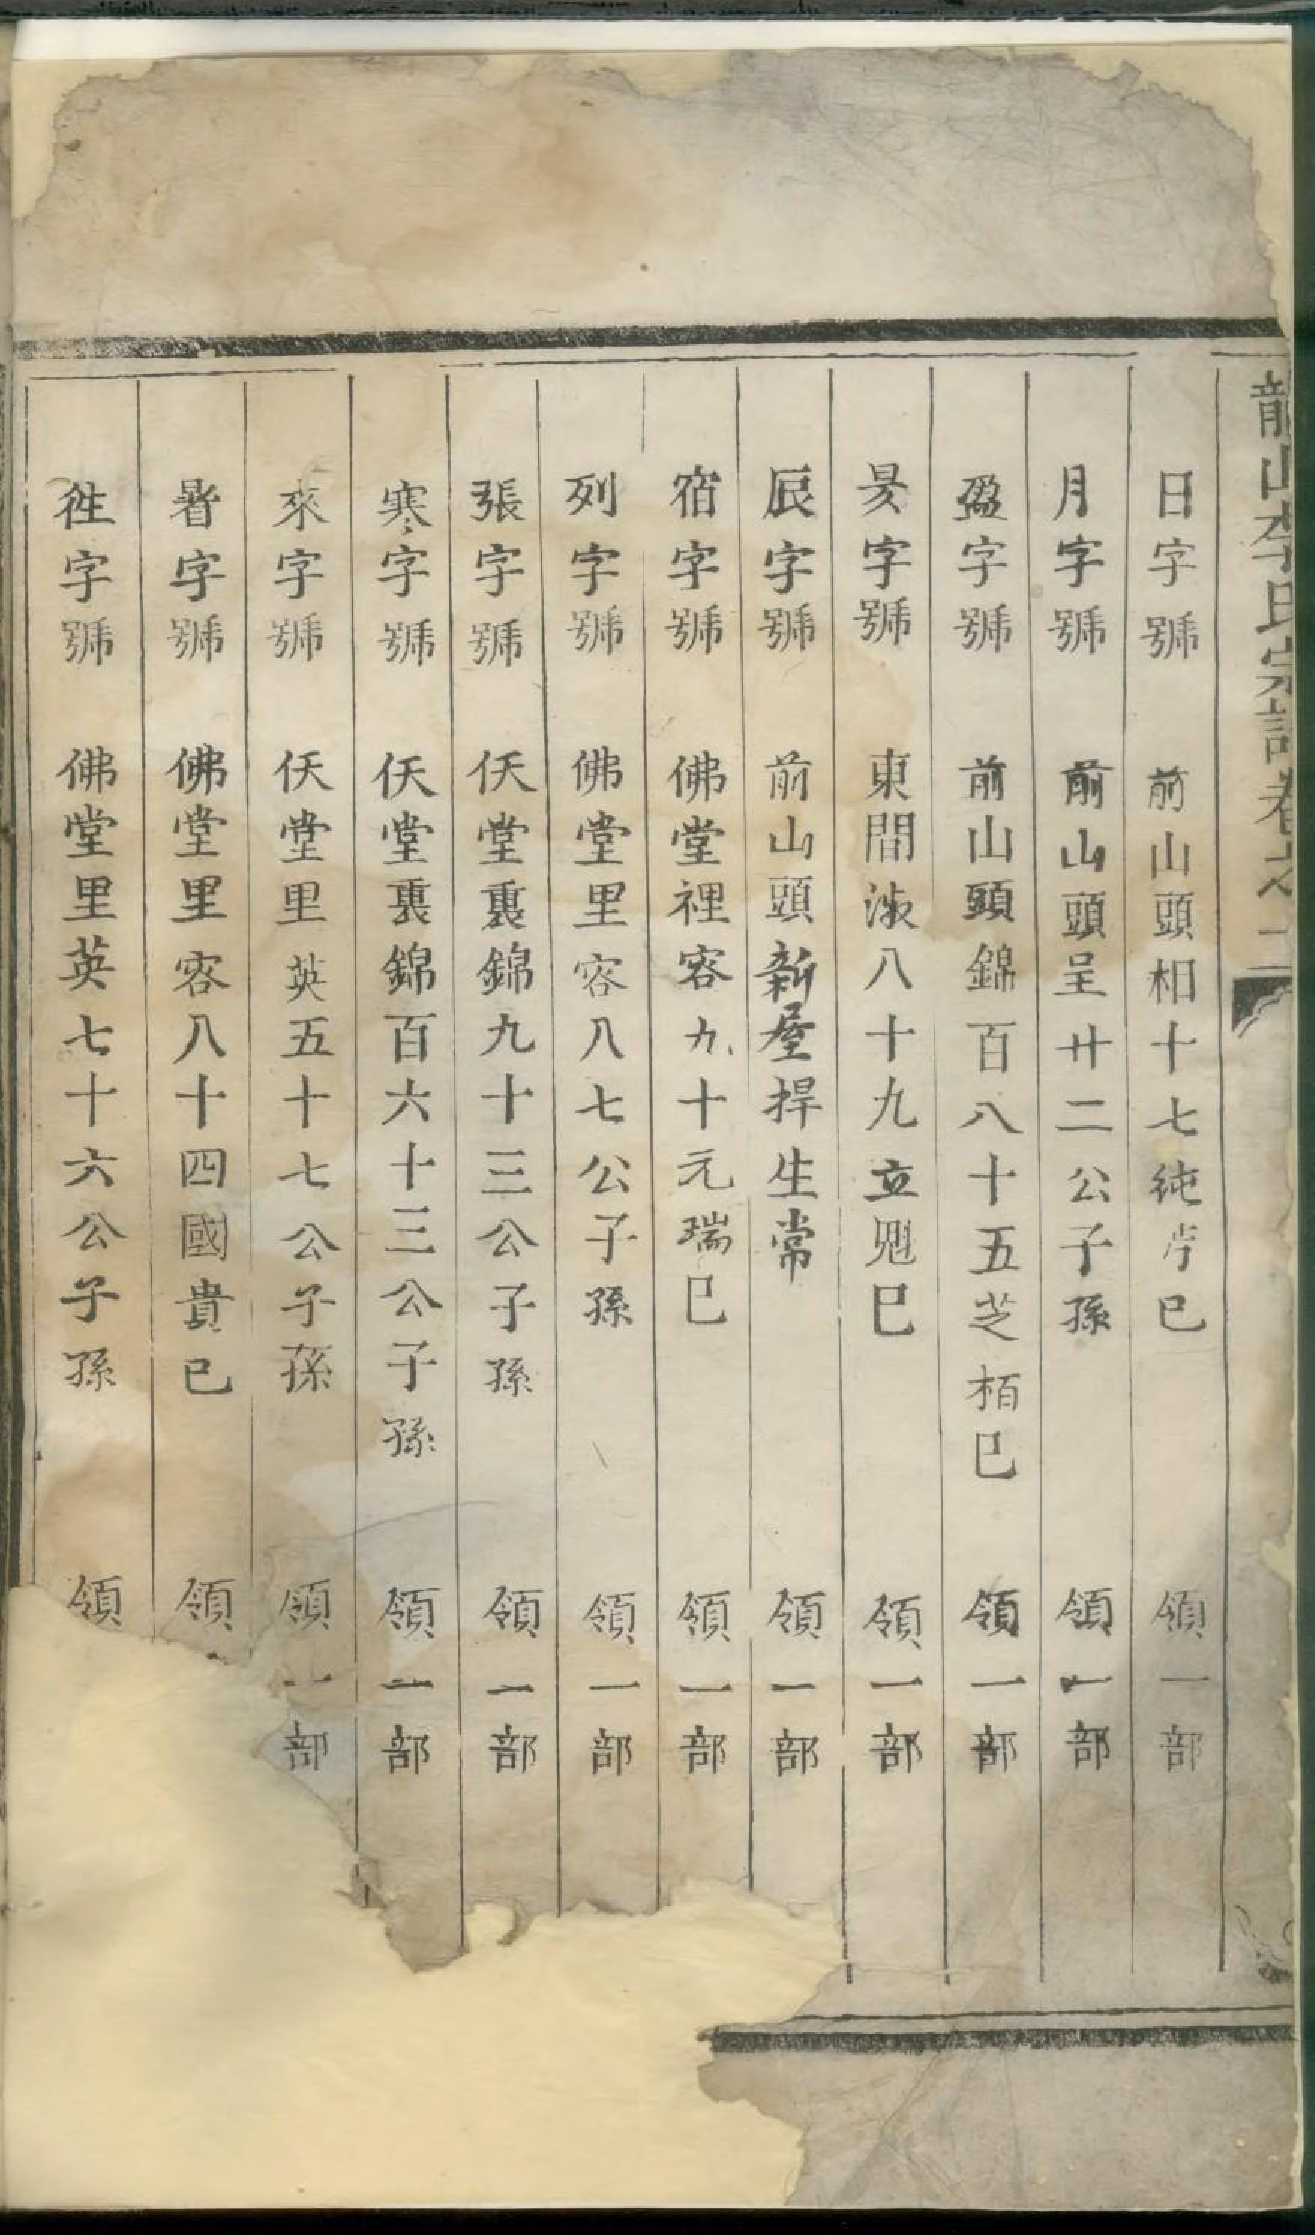 龍山李氏宗譜卷之二
日字號 前山頭相十七純 已 領一部
月字號 前山頭呈廿二公子孫 領一部
盈字號 前山頭錦百八十五芝栢巳 領一部
昃字號 東間溆八十九立兠巳 領一部
辰字號 前山頭新屋捍生常 領一部
宿字號 佛堂裡容九十元瑞巳 領一部
列字號 佛堂里容八七公子孫 領一部
張字號 仸堂裏錦九十三公子孫 領一部
寒字號 仸堂裏錦百六十三公子孫 領一部
來字號 仸堂里英五十七公子孫 領一部
暑字號 佛堂里容八十四國貴已 領
徃字號 佛堂里英七十六公子孫 領